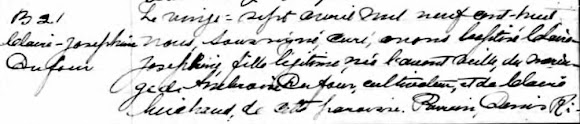 B 21
Claire-Josephine
Dufour
Le vingt-sept avril mil neuf cent-huit
Nous, soussigné curé, avons baptisé Claire
Josephine, fille légitime, née l'avant veille, du maria-
ge de Ambroise Dufour, cultivateur, et de Claire
Michaud, de cette paroisse. Parrain, Ri-